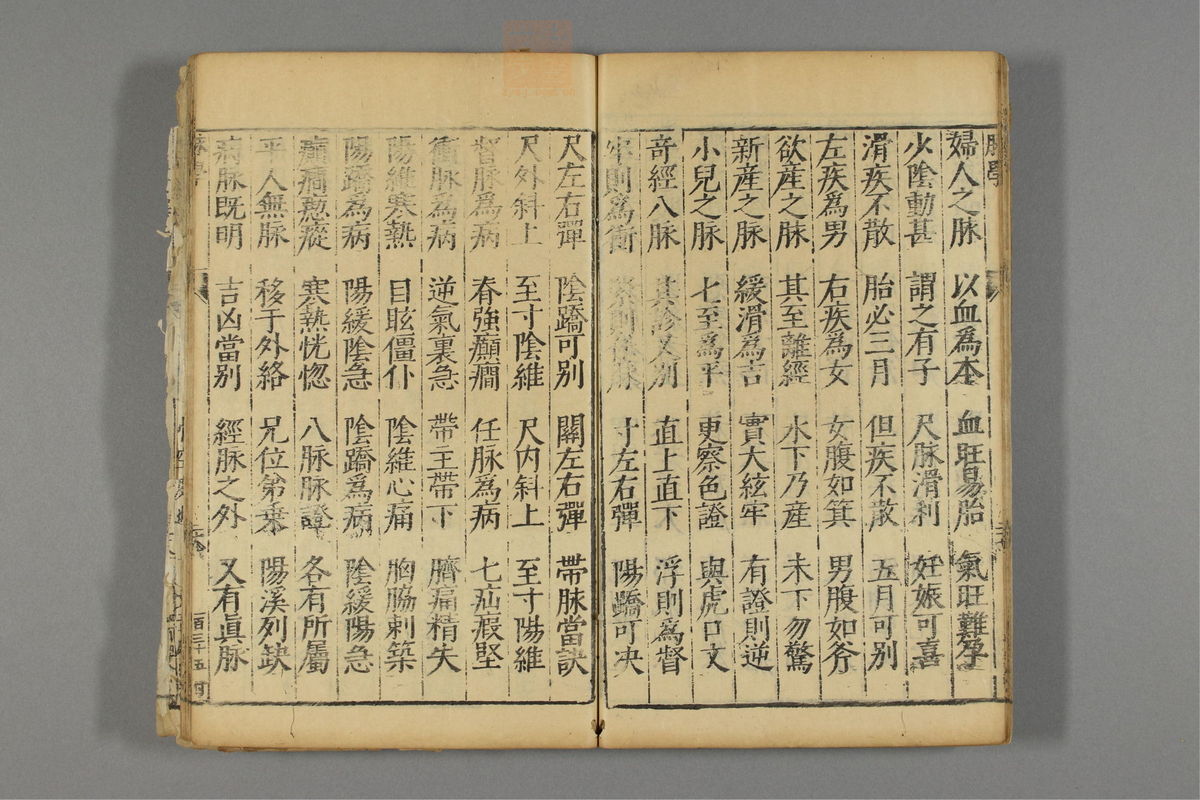 脉學
婦人之脉 以血爲本 血旺易胎 氣旺難孕
少陰動甚 謂之有子 尺脉滑利 妊娠可喜
滑疾不散 胎必三月 但疾不散 五月可別
左疾爲男 右疾爲女 女腹如箕 男腹如斧
欲産之脉 其至離經 水下乃産 未下勿驚
新産之脉 緩滑爲吉 實大絃牢 有證則逆
小兒之脉 七至爲平 更察色證 與虎口文
奇經八脉 其診又別 直上直下 浮則爲督
牢則爲衝 緊則任脉 寸左右彈 陽蹻可决
尺左右彈 陰蹻可別 關左右彈 帶脉當訣
尺外斜上 至寸陰維 尺内斜上 至寸陽維
督脉爲病 脊強癲癇 任脉爲病 七疝瘕堅
衝脉爲病 逆氣裏急 帶主帶下 臍痛精失
陽維寒熱 目眩僵仆 陰維心痛 胸脇刺築
陽蹻爲病 陽緩陰急 陰蹻爲病 陰緩陽急
癲癇瘛瘲 寒熱恍惚 八脉脉證 各有所屬
平人無脉 移于外絡 兄位弟乗 陽溪列缺
病脉既明 吉凶當別 經脉之外 又有眞脉
脉學
百三十五
四